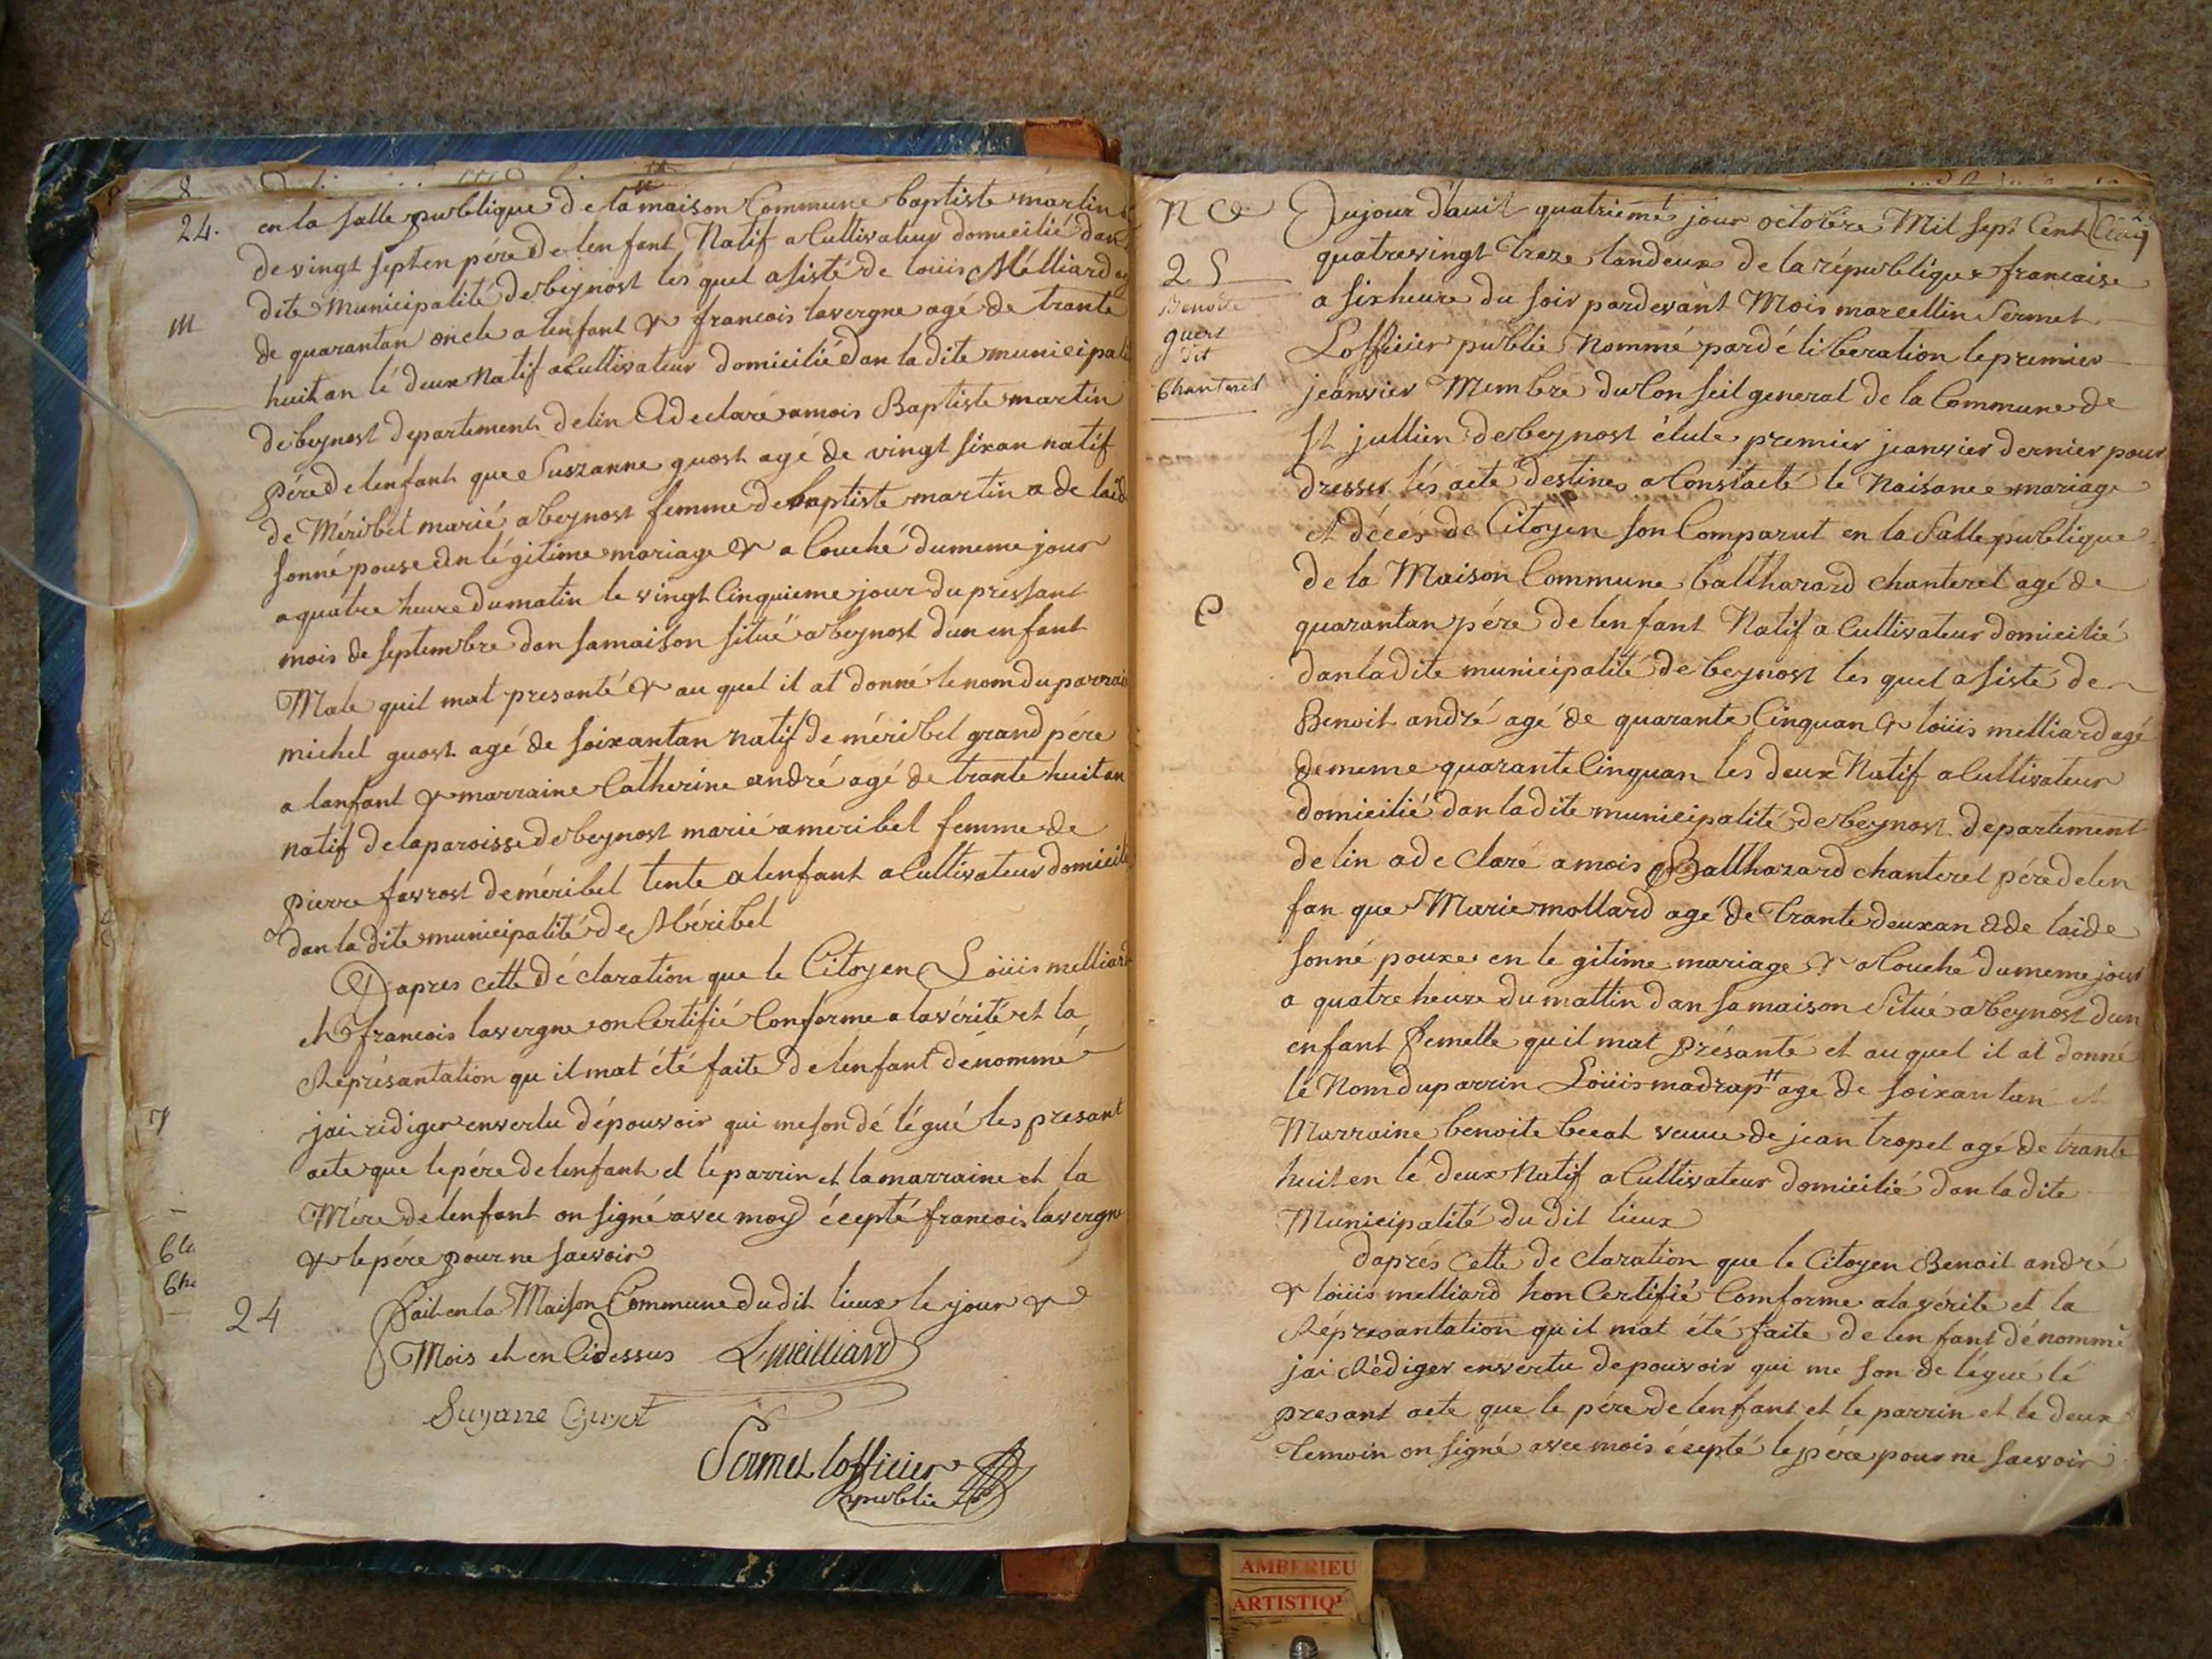 8
24.
en la salle publique de la maison Commune baptiste martin
de vingt septen pére de lenfant Natif a Cultivateur domicilié dan
dite Municipalité de beynost les quel asisté de loüis Mélliard
m
de quarantan oncle a lenfant & francois lavergne agé de trante
huit an lé deux Natif a Cultivateur domicilié dan la dite municipali
de beynost departement delin A declaré a mois Baptiste martin
pére de lenfant que Suszanne guost agé de vingt sixan natif
de Méribel marié a beynost femme de baptiste martin a de laid
sonné pouse en légitime mariage & a Couché dumeme jour
a quatre heure dumatin le vingt Cinquieme jour du pressant
mois de septembre dan samaison situé a beynost dun enfant
Male quil mat presanté & au quel il at donné lenom du parrain
michel guost agé de soixantan natif de méribel grand pére
a lanfant & marraine Catherine andré agé de trante huit an
natif de la paroisse de beynost marié a meribel femme de
pierre favrost de méribel tente a lenfant a Cultivateur domicilié
dan la dite municipalité de Méribel
Dapres cette dé claration que le Citoyen Loüis melliard
et francois lavergne on Certifié Conforme a lavérité et la
Représantation qu il mat été faite de lenfant dénommé
jai rédiger envertu dépouvoir qui meson dé légué les presant
acte que le pére de lenfant et le parrin et la marraine et la
Mére de lenfant on signé avec moy écepté francois lavergne
& le pére pour ne saevoir
24
fait en la Maison Commune du dit lieux le jour &
Mois et en Cidessus L meilliard
Suzanne Guyot
Sermet lofficier
publie
N C
25
Benoite
quest
dit
Chanteret
Aujour dauit quatriéme jour octobre Mil sept Cent
quatrevingt Treze landeux de la république francaise
a sixheure du soir pardevant Mois marcellin Sermet
Lofficier publie Nommé par dé libération le premier
jeanvier Membre du Conseil general de la Commune de
St jullien de beynost élule premier jeanvier dernier pour
dresser lés acte destines a Constacté le Naisance mariage
et décés de Citoyen son Comparut en la Salle publique
de la Maison Commune balthazard chanteret agé de
quarantan pére de lenfant Natif a Cultivateur domicilié
dan la dite municipalité de beynost les quel asisté de
Benoit andré agé de quarante Cinquan & loüis melliard agé
de meme quarante Cinquan les deux Natif a Cultivateur
domicilié dan la dite municipalité de beynost departement
de lin a de claré a mois Balthazard chanteret pére delen
fan que Marie mollard agé de trante deuxan a de laide
sonné pouxe en le gitime mariage & a Couché dumeme jour
a quatre heure du mattin dan samaison Situé a beynost dun
enfant femelle quil mat Présanté et au quel il at donné
lé Nom du parrin Loüis madrap tt agé de soixantan et
Marraine benoite becat veuve de jean tropel agé de trante
huit en lé deux Natif a Cultivateur domicilié dan la dite
Municipalité du dit lieux
daprés Cette de claration que le Citoyen Benoit andré
& loüis melliard hon Certifié Comforme a la vérite et la
Représantation qu il mat été faite de lenfant dénommé
jai Rédiger envertu de pouvoir qui me son de légué lé
presant acte que le pére de lenfant et le parrin et le deux
temoin on signé avec mois écepté le pére pour ne saevoir
AMBERIEU
ARTISTIQ